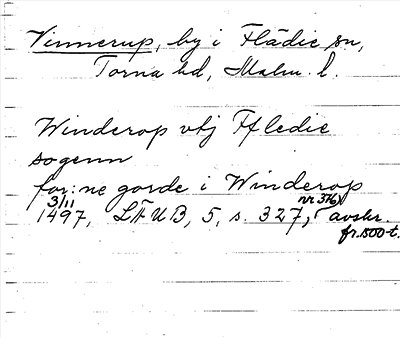 Vinnerup, by i Flädie sn,
Torna hd, Malm. l.
Winderop vtj Ffledie
sogenn
for:ne gorde i Winderop
3/11 1497, LÄUB, 5, s. 327, nr 376, avskr.
fr. 1500-t.